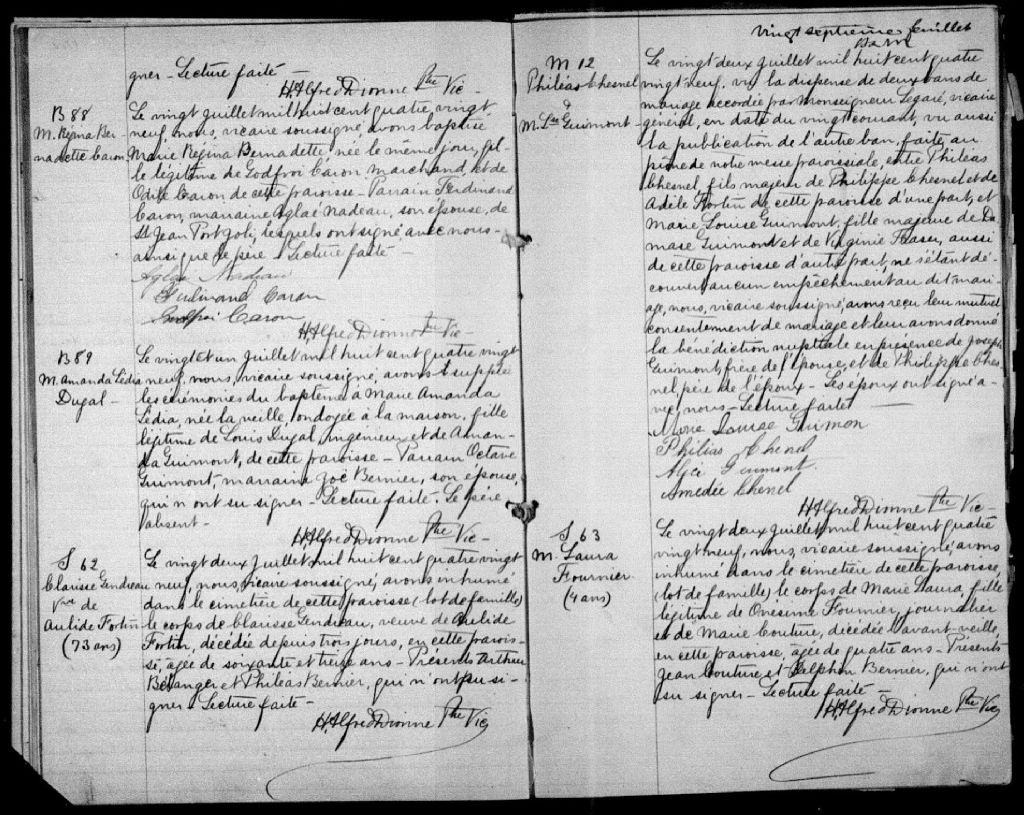 gner - Lecture faite
H. Alfred Dionne Ptre Vic -
B 88
M. Régina Ber-
nadette Caron
Le vingt juillet mil huit cent quatre vingt
neuf, nous, vicaire soussigné, avons baptisé
Marie Régina Bernadette née le même jour, fil-
le légitime de Godfroi Caron marchand, et de
Odile Caron de cette paroisse - Parrain Ferdinand
Caron, marraine Aglaé Nadeau, son épouse, de
St Jean Port Joli, lesquels ont signé avec nous
ainsi que le père - Lecture faite -
Aglaé Nadeau
Ferdinand Caron
Godfroi Caron
H. Alfred Dionne Ptre Vic -
B 89
M. Amanda Lédia
Dugal -
Le vingt et un juillet mil huit cent quatre vingt
neuf, nous, vicaire soussigné, avons suppléé
les cérémonies du baptême à Marie Amanda
Lédia, née la veille, ondoyée à la maison, fille
légitime de Louis Dugal, ingénieur et de Aman-
da Guimont, de cette paroisse - Parrain Octave
Guimont, marraine Zoé Bernier, son épouse,
qui n'ont su signer - Lecture faite. Le père
absent -
H. Alfred Dionne Ptre Vic -
S 62
Clarisse Gendreau
Vve de
Aubide Fortin
(73 ans)
Le vingt deux juillet mil huit cent quatre vingt
neuf, nous, vicaire soussigné, avons inhumé
dans le cimetière de cette paroisse (lot de famille)
le corps de Clarisse Gendreau, veuve de Aubide
Fortin, décédée depuis trois jours, en cette parois-
se, âgée de soixante et treize ans - Présents Arthur
Bélanger et Philéas Bernier, qui n'ont pu si-
gner - Lecture faite -
H. Alfred Dionne Ptre Vic
vingt septième feuillet
M 12
Philéas Chesnel
&
M. Lse Guimont -
Le vingt deux juillet mil huit cent quatre
vingt neuf, vu la dispense de deux bans de
mariage accordée par Monseigneur Légaré, vicaire
général, en date du vingt courant, vu aussi
la publication de l'autre ban, faite au
prône de notre messe paroissiale, entre Philéas
Chesnel, fils majeur de Philippe Chesnel et de
Adèle Fortin de cette paroisse d'une part, et
Marie Louise Guimont, fille majeure de Da-
mase Guimont et de Virginie Fraser, aussi
de cette paroisse d'autre part, ne s'étant dé-
couvert aucun empêchement au dit mari-
age, nous, vicaire soussigné, avons reçu leur mutuel
consentement de mariage et leur avons donné
la bénédiction nuptiale en présence de Joseph
Guimont, frère de l'épouse, et de Philippe Ches-
nel père de l'époux - Les époux ont signé a-
vec nous - Lecture faite -
Marie Louise Guimon
Philias Chenel
Guimont
Amedée Chenel
H. Alfred Dionne Ptre Vic -
S 63
M. Laura
Fournier
(4 ans)
Le vingt deux juillet mil huit cent quatre
vingt neuf, nous, vicaire soussigné, avons
inhumé dans le cimetière de cette paroisse,
(lot de famille) le corps de Marie Laura, fille
légitime de Onésime Fournier, journalier
et de Marie Couture, décédée l'avant-veille,
en cette paroisse, âgée de quatre ans - Présents
Jean Couture et Delphon Bernier, qui n'ont
su signer - Lecture faite -
H. Alfred Dionne Ptre Vic